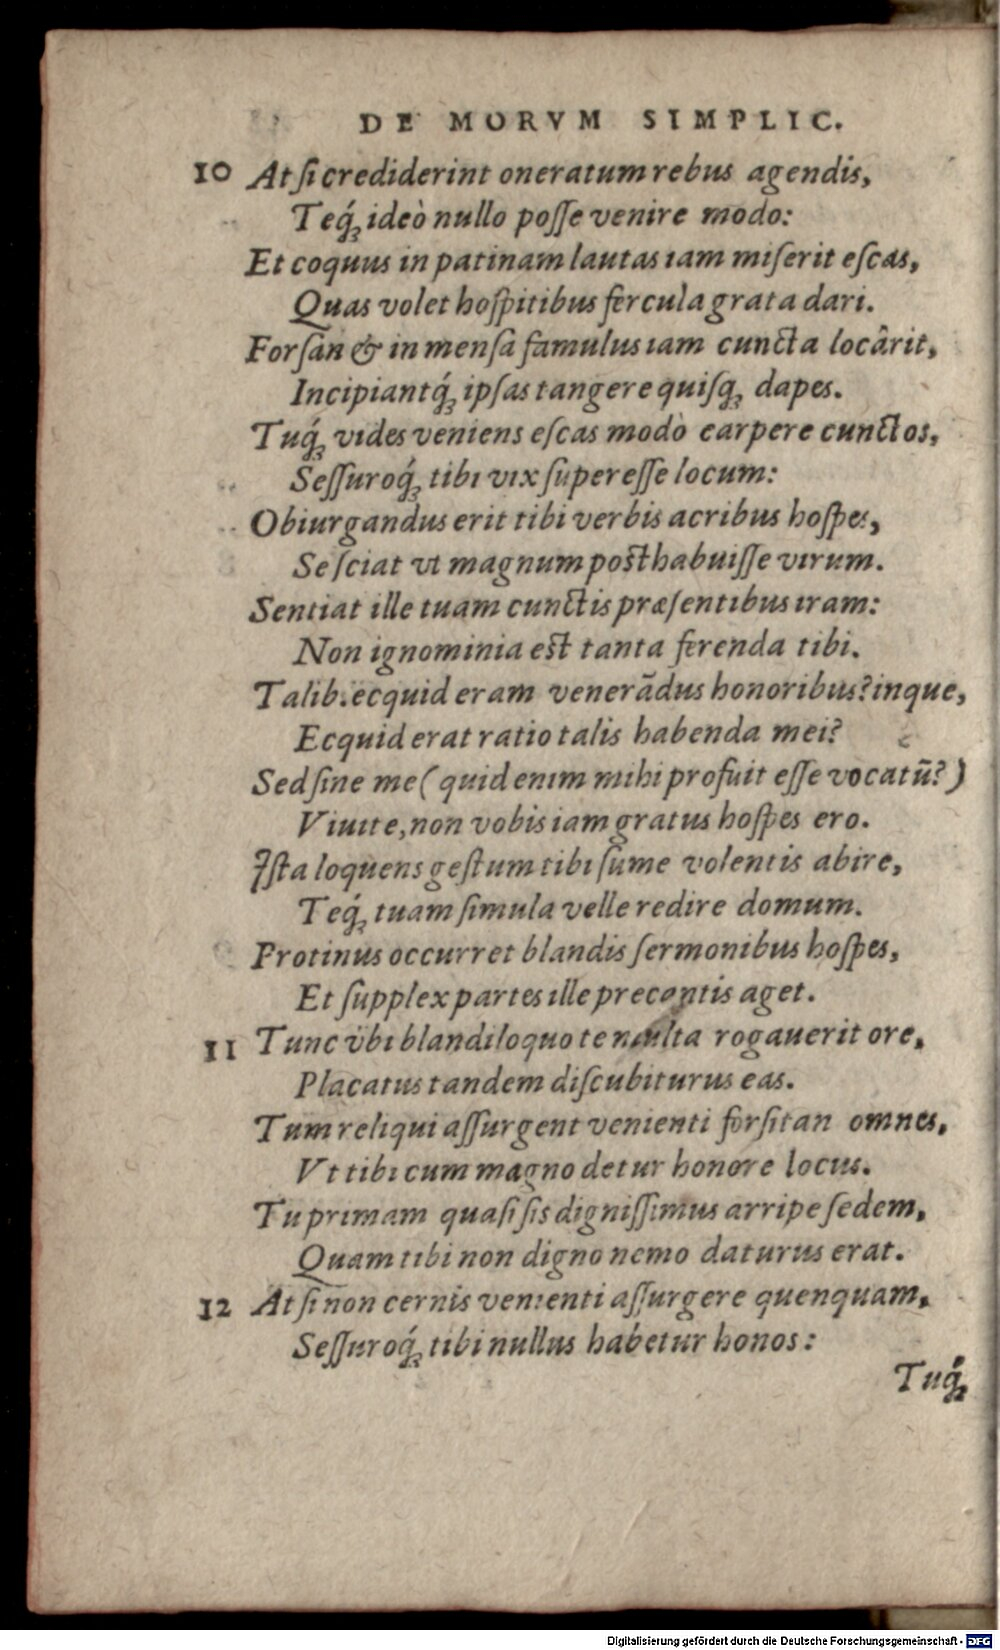 DE MORVM SIMPLIC.
10 At ſi crediderint oneratum rebus agendis,
Teq́; ideò nullo poſſe venire modo:
Et coquus in patinam lautas iam miſerit eſcas,
Quas volet hoſpitibus fercula grata dari.
Forſan & in menſa famulus iam cuncta locârit,
Incipiantq́; ipſas tangere quiſq; dapes.
Tuq́; vides veniens eſcas modò carpere cunctos,
Seſſuroq́; tibi vix ſupereſſe locum:
Obiurgandus erit tibi verbis acribus hoſpes,
Se ſciat vt magnum poſthabuiſſe virum.
Sentiat ille tuam cunctis præſentibus iram:
Non ignominia eſt tanta ferenda tibi.
Talib. ecquid eram venerādus honoribus? inque,
Ecquid erat ratio talis habenda mei?
Sed ſine me (quid enim mihi profuit eſſe vocatū?)
Viuite, non vobis iam gratus hoſpes ero.
Iſta loquens geſtum tibi ſume volentis abire,
Teq́; tuam ſimula velle redire domum.
Protinus occurret blandis ſermonibus hoſpes,
Et ſupplex partes ille precantis aget.
11 Tunc vbi blandiloquo te multa rogauerit ore,
Placatus tandem diſcubiturus eas.
Tum reliqui aſſurgent venienti forſitan omnes,
Vt tibi cum magno detur honore locus.
Tu primam quaſi ſis digniſſimus arripe ſedem,
Quam tibi non digno nemo daturus erat.
12 At ſi non cernis venienti aſſurgere quenquam,
Seſſuroq́; tibi nullus habetur honos:
Tuq́;
Digitalisierung gefördert durch die Deutsche Forschungsgemeinschaft - DFG